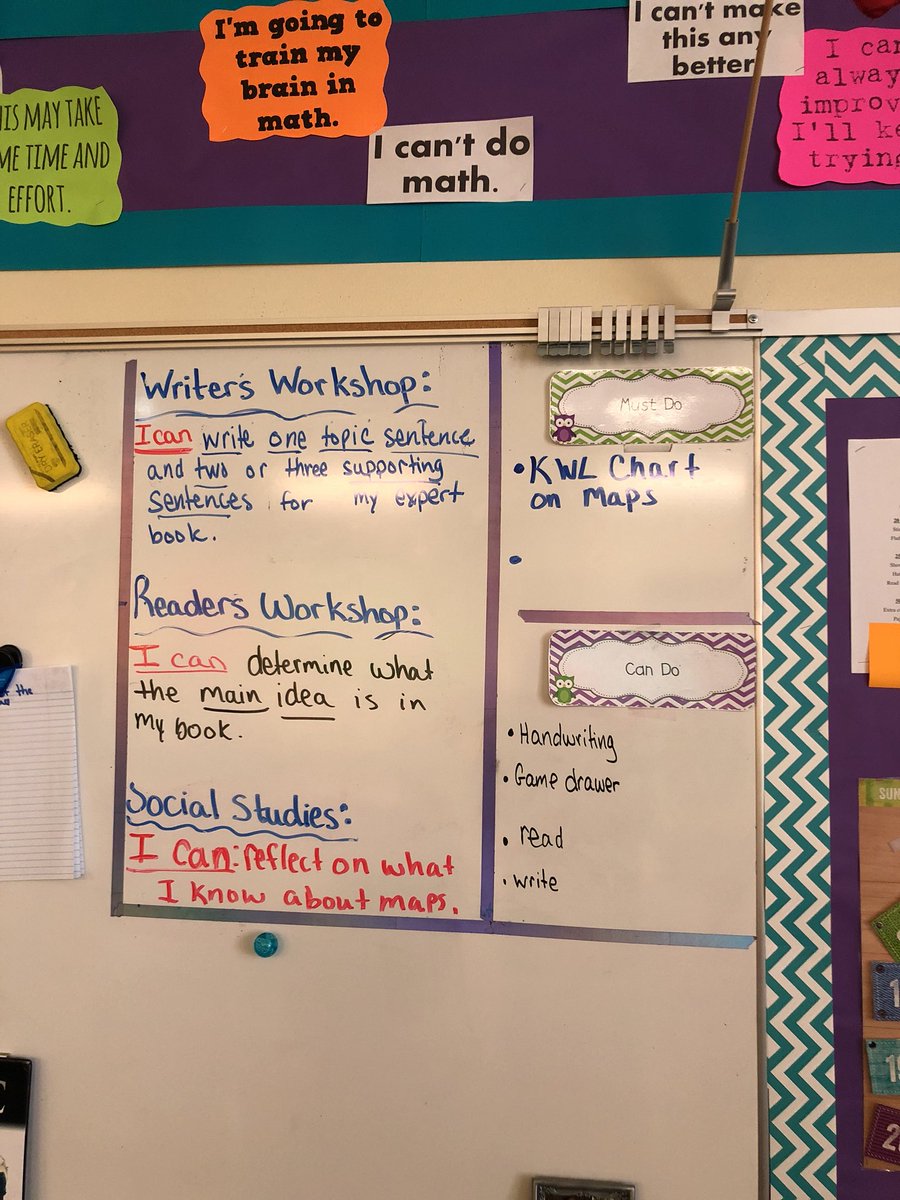 I'm going to
train my
brain in
math.
I can't make
this any
better
I can't do
math.
MAY TAKE
TIME AND
EFFORT.
I
trying
Writer's Workshop:
I can write one topic sentence
and two or three supporting
sentences for my expert
book.
Readers Workshop:
I can determine what
the main idea is in
my book.
Social Studies:
I Can: reflect on what
I know about maps.
Must Do
• KWL Chart
on Maps
•
Can Do
• Handwriting
• Game drawer
• read
• write
SUN